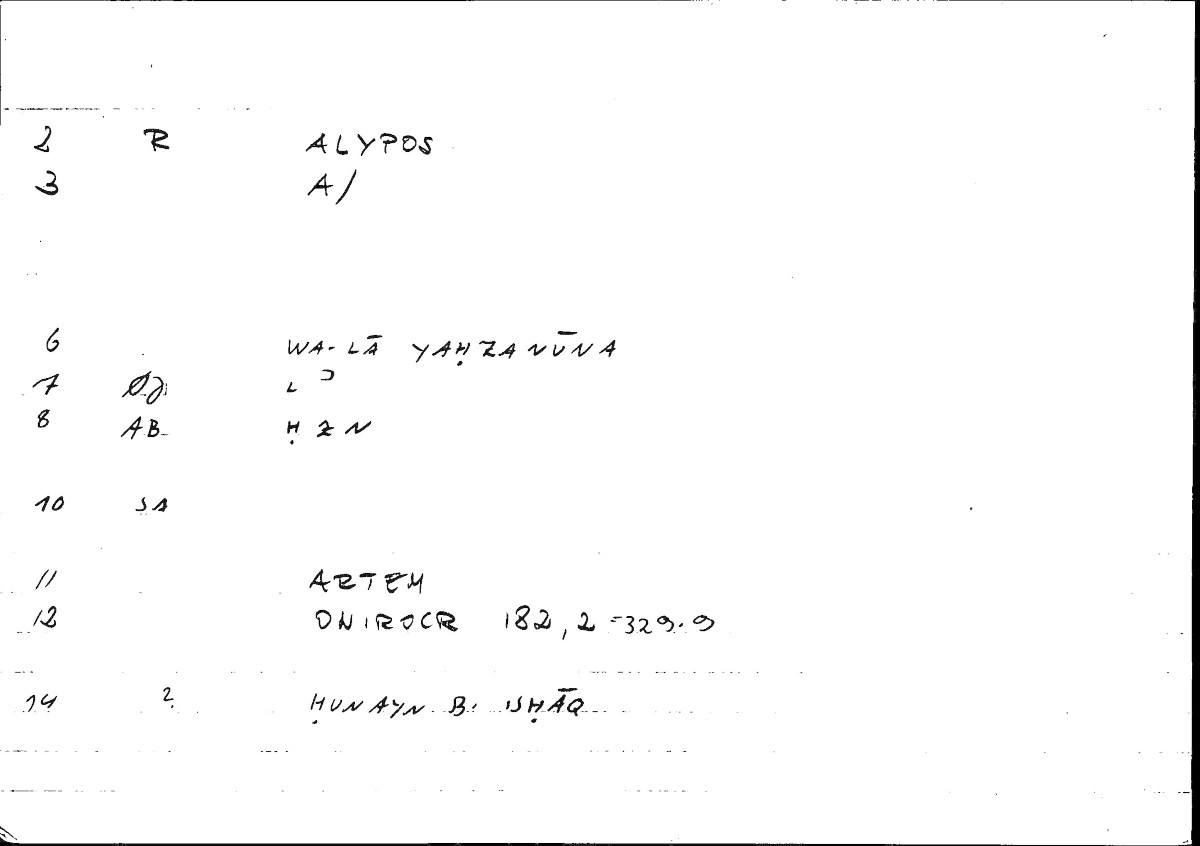 2 R ALYPOS
3 A/
6 WA-LĀ YAḤZANŪNA
7 L
8 AB ḤZN
10 SA
11 ARTEM
12 ONIROCR 182,2=329.9
14 2 ḤUNAYN B. ISḤĀQ